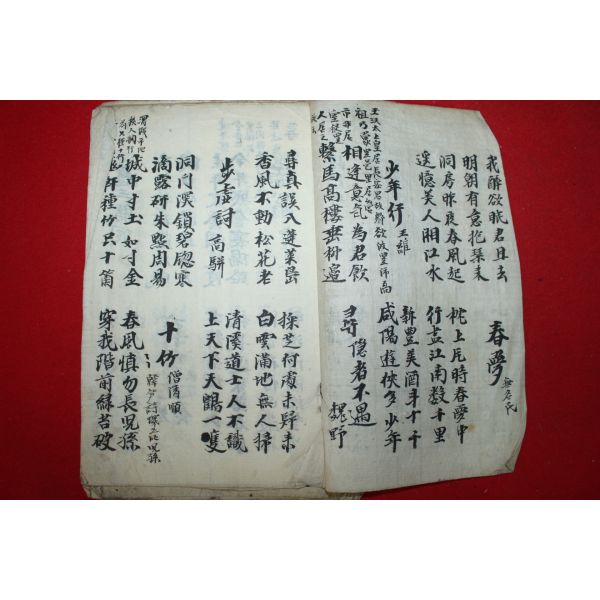 我醉欲眠君且去
明朝有意抱琴来
春夢 無名氏
洞房昨夜春風起
遙憶美人湘江水
枕上片時春夢中
行盡江南數千里
少年行 王維
新豊美酒斗十千
咸陽遊俠多少年
相逢意氣為君飲
繫馬高樓垂柳邉
尋隱者不遇 魏野
尋真誤入蓬萊島
香風不動松花老
採芝何處未歸来
白雲滿地無人掃
步虛詩 高駢
清溪道士人不識
上天下天鶴一隻
洞門深鎖碧窓寒
滴露研朱點周易
十竹 僧清順
城中寸土如寸金
種竹只十箇
春風慎勿長兒孫
穿我階前綠苔破